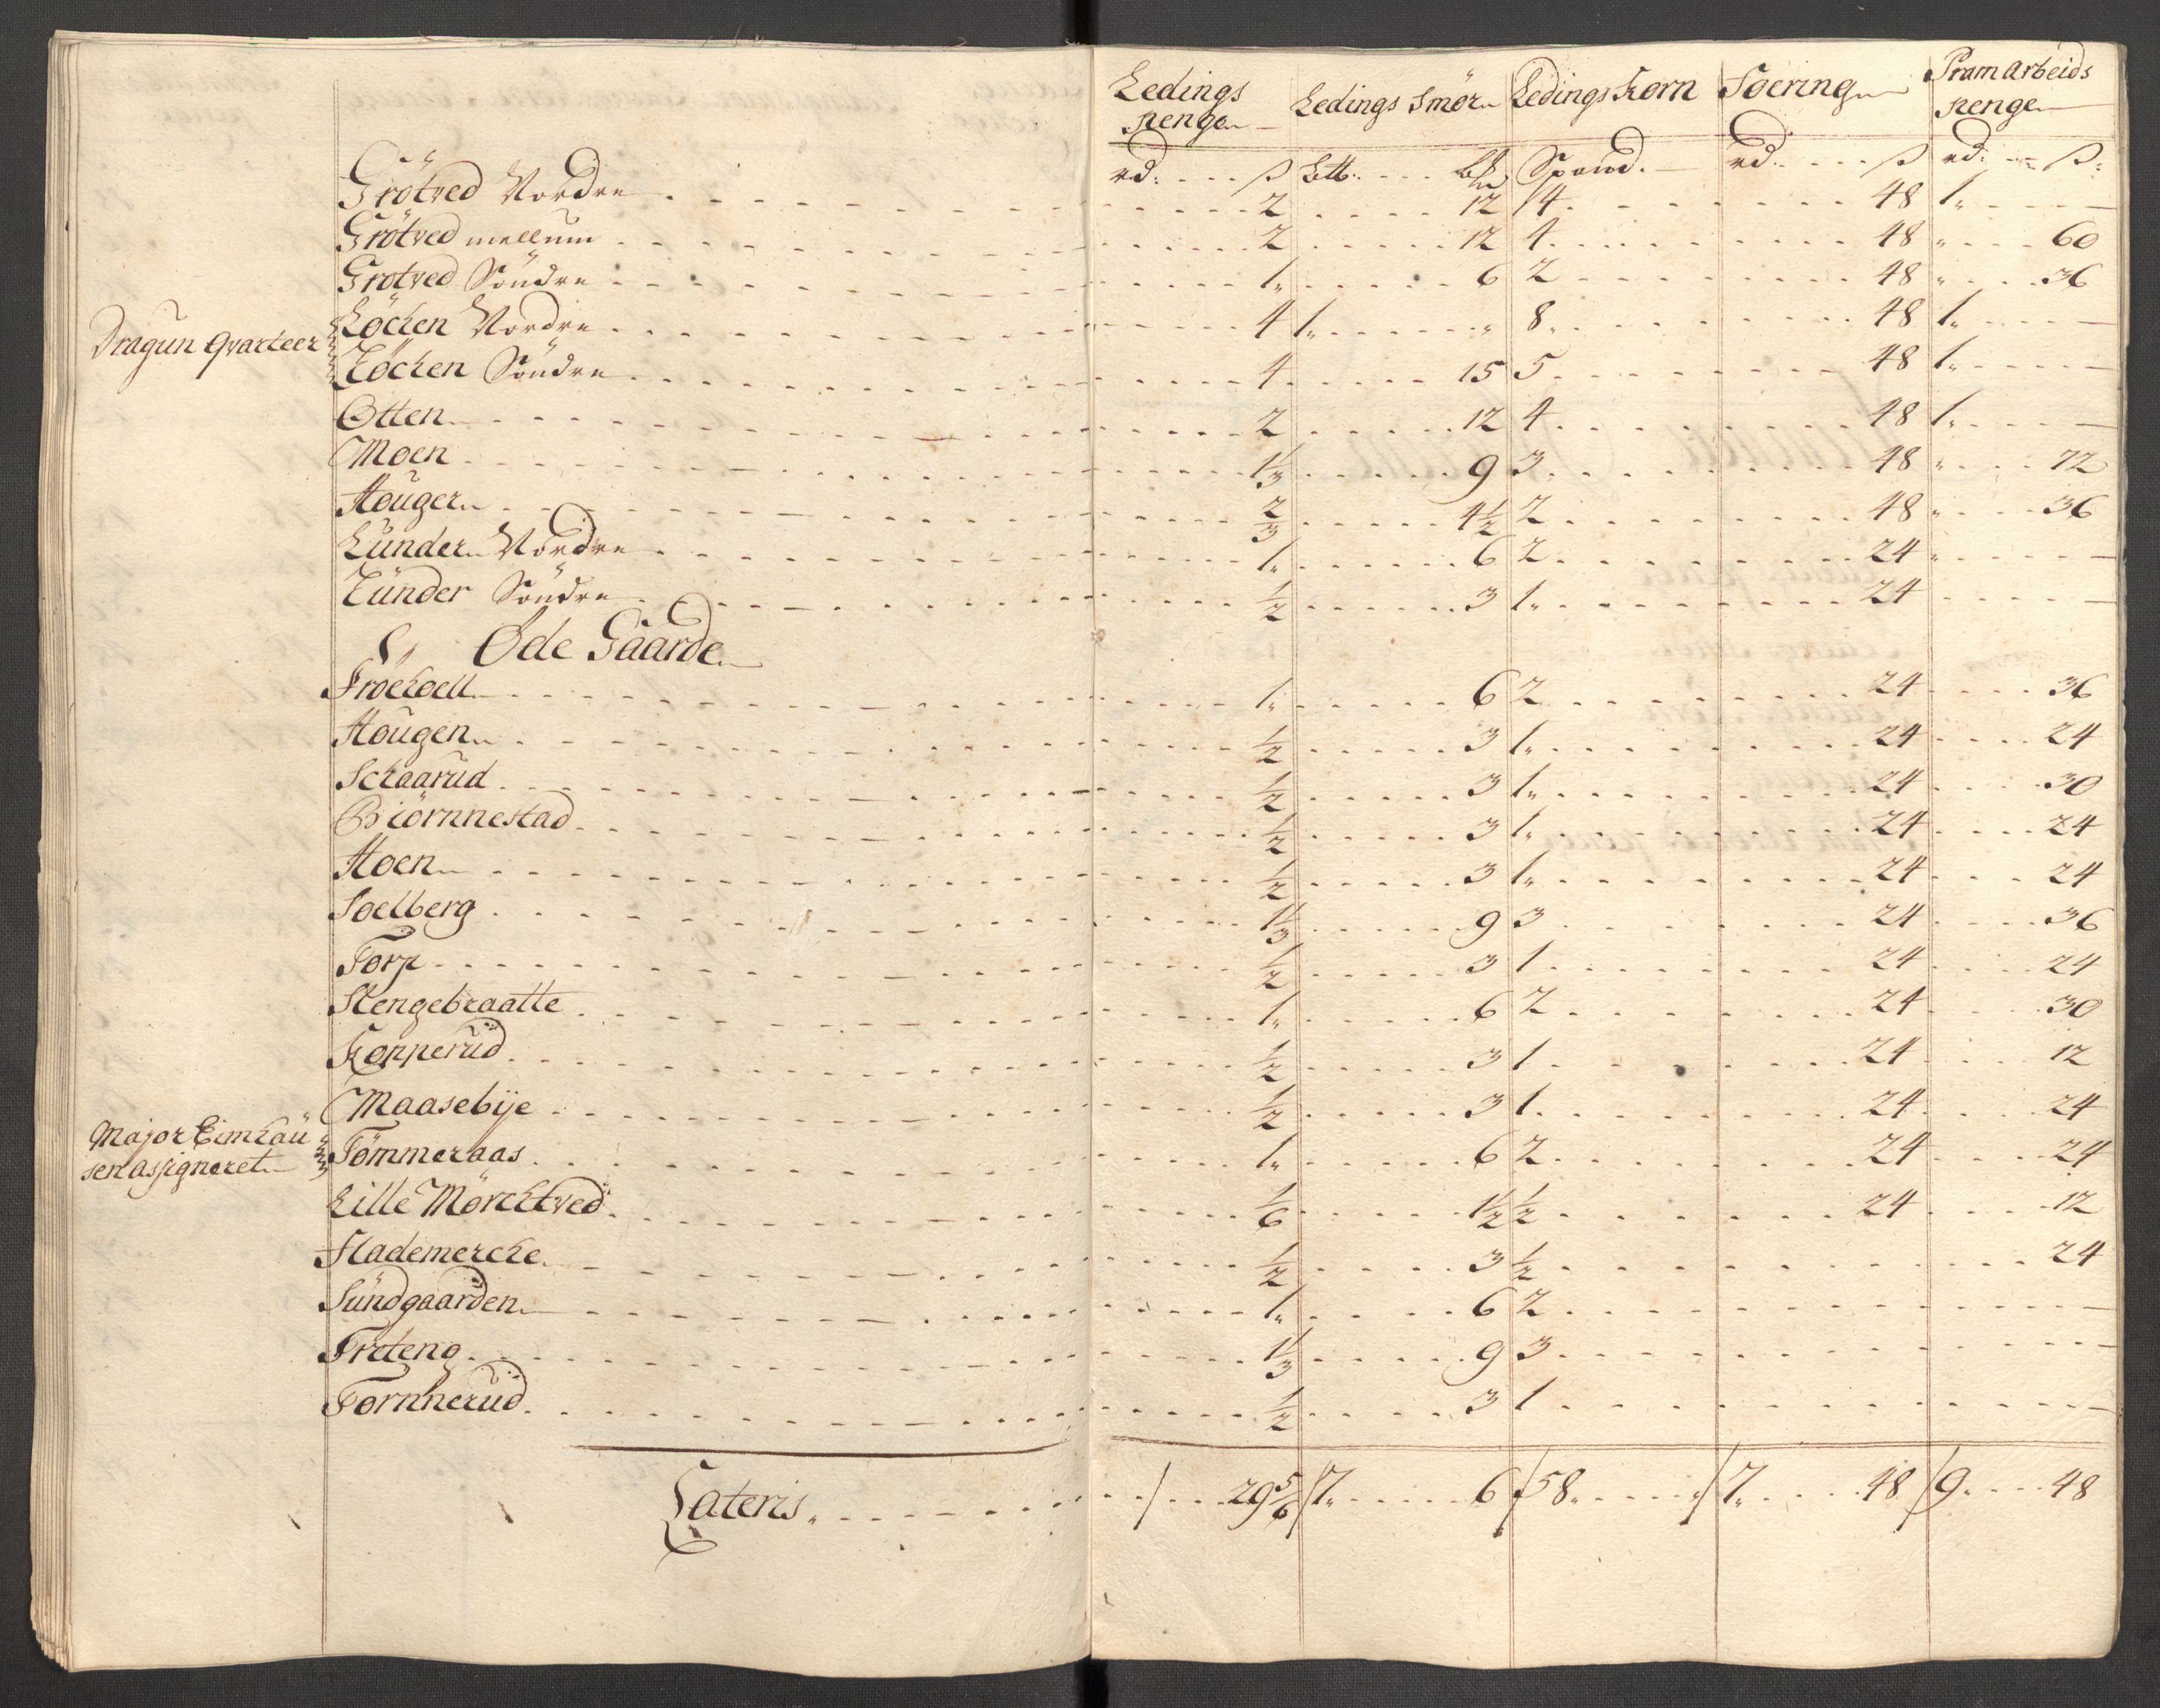 Ledings penge | Ledings Smør | Ledings Korn | Foering | Pram arbeids penge
rd: ß | Lttb: | Spand. | rd. ß | rd: ß:
Grötved Nordre 2 12 4 48 1
Grötved mellum 2 12 4 48 60
Grötved Söndre 1 6 2 48 36
Dragun Qvarteer
Löcken Nordre 4 1 8 48 1
Löcken Söndre 4 15 5 48 1
Otten 2 12 4 48 1
Moen 1 1/3 9 3 48 72
Houger 2/3 4 1/2 2 48 36
Lunder Nordre 1 6 2 24
Lunder Söndre 1/2 3 1 24
Øde Gaarde
Fröchoell 1 6 2 24 36
Hougen 1/2 3 1 24 24
Schaarud 1/2 3 1 24 30
Biörnnestad 1/2 3 1 24 24
Hoen 1/2 3 1 24 24
Soelberg 1 1/3 9 3 24 36
Torp 1/2 3 1 24 24
Stengebraatte 1 6 2 24 30
Kopperud 1/2 3 1 24 12
Maasebÿe 1/2 3 1 24 24
Major Eimhau
sen assigneret
Tömmeraas 1 6 2 24 24
Lille Mörchtved 1/6 1 1/2 1/2 24 12
Flademercke 1/2 3 1/2 24
Sundgaarden 1 6 2
Freteng 1 1/3 9 3
Tornnerud 1/2 3 1
Lateris 29 5/6 7 6 58 7 48 9 48